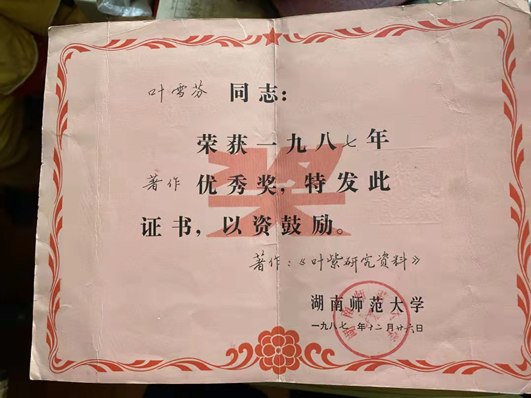 叶雪芬 同志：
荣获一九八七年
著作 优秀奖，特发此
证书，以资鼓励。
著作：《叶紫研究资料》
湖南师范大学
一九八七年十二月廿六日
奖